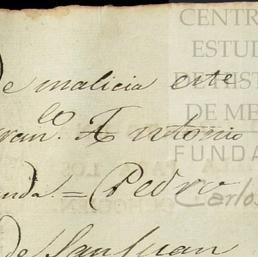 CENTR
ESTUD
DE HIST
DE ME
FUNDA
Carlos
de malicia este
fran.co Antonio
nda. = Pedro
de San Juan